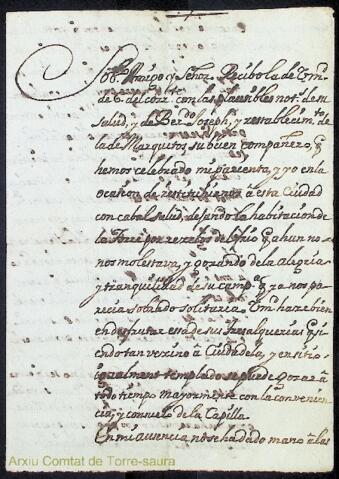 Amigo y Señor. Recibo la de Vm.
de 6. del corr.te con las plausibles not.s de su
salud, y de Ber.do Joseph, y restablecim.to de
la de Marquitos, su buen compañero, q
hemos celebrado mi parienta, y yo en la
ocasion de restituirnos à esta Ciudad
con cabal salud, dejando la habitacion de
la Torre por rezelos del frio q ahun no
nos molestava, y gozando de la alegria
y tranquilidad de su camp.a q ya nos pa-
recia sobrado solitaria. Vm. hare bien
en disfrutar essa de sus Alquerias q si-
endo tan vezino à Ciudadela, y en sitio
igualmente templado se puede gozar à
todo tiempo mayormente con la convenien-
cia, y consuelo de la Capilla.
En mi ausencia no se ha dado mano à las
Arxiu Comtat de Torre-saura